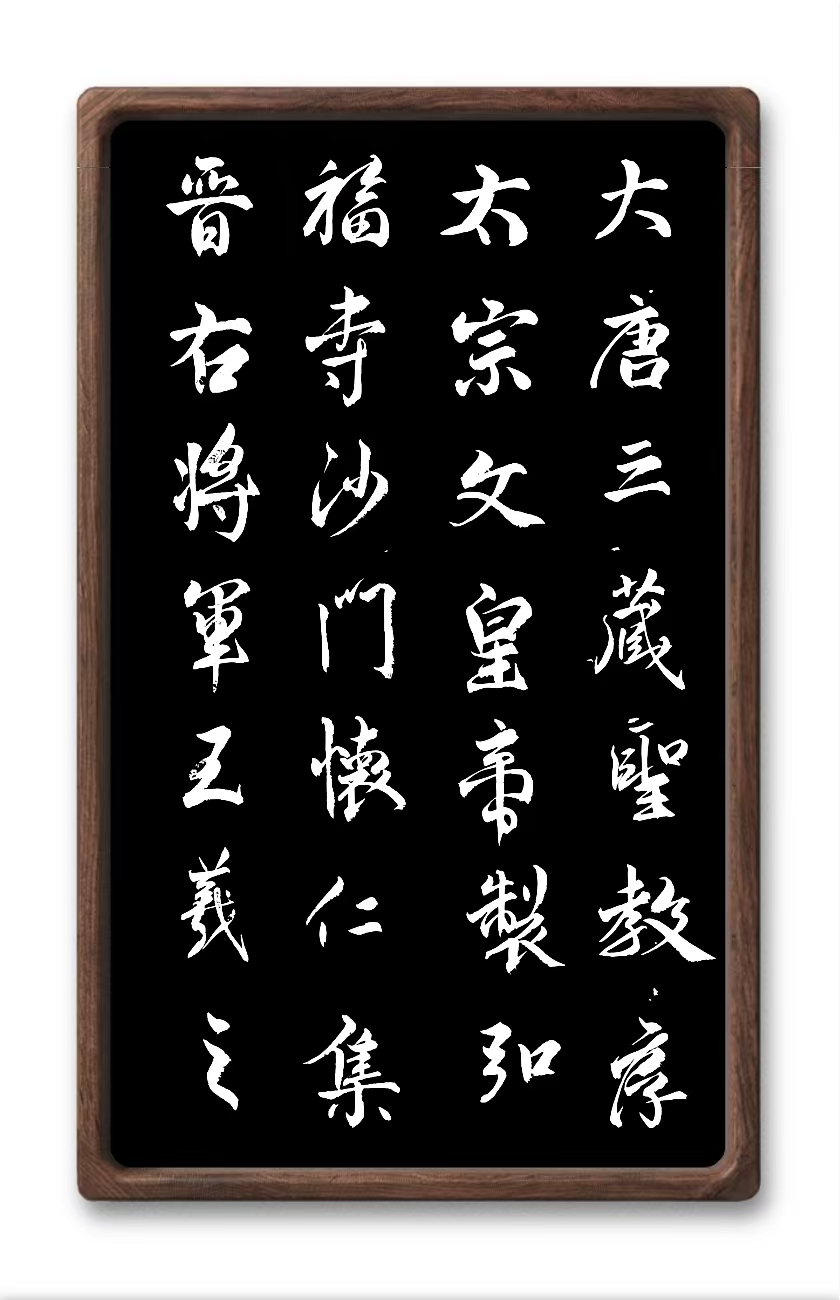 大唐三藏聖教序
太宗文皇帝製弘
福寺沙門懷仁集
晉右將軍王羲之